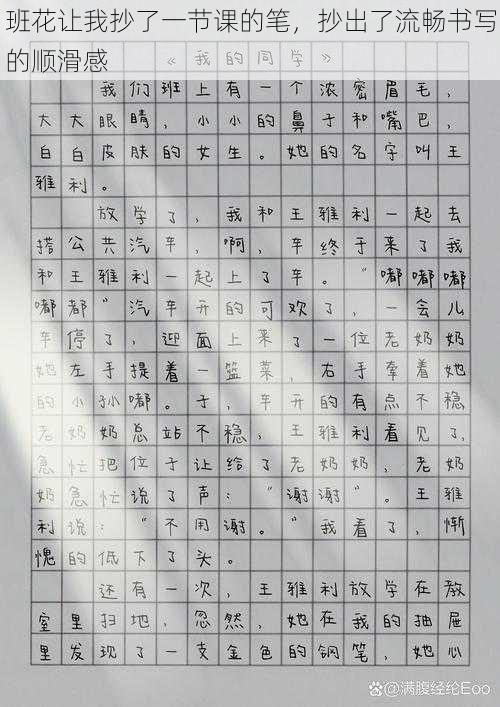 班花让我抄了一节课的笔，抄出了流畅书写
的顺滑感
《我的同学》
我们班上有一个浓密眉毛，
大大眼睛，小小的鼻子和嘴巴，
白白皮肤的女生。她的名字叫王
雅利。
放学了，我和王雅利一起去
搭公共汽车，啊，车终于来了我
和王雅利一起上了车。“嘟嘟嘟
嘟都”汽车开的可欢了，一会儿
车停了，迎面上来了一位老奶奶
她左手提着一篮菜，右手牵着她
的小孙嘟。于，车开的有点不稳
老奶奶总站不稳，王雅利看见了，
急忙把位于让给了老奶奶，老奶
奶急忙说了声：“谢谢”。王雅
利说：“不用谢。”我看了，惭
愧的低下了头。
还有一次，王雅利放学在教
室里扫地，忽然，她在我的抽屉
里发现了一支金色的钢笔，她心
@满腹经纶Eoo